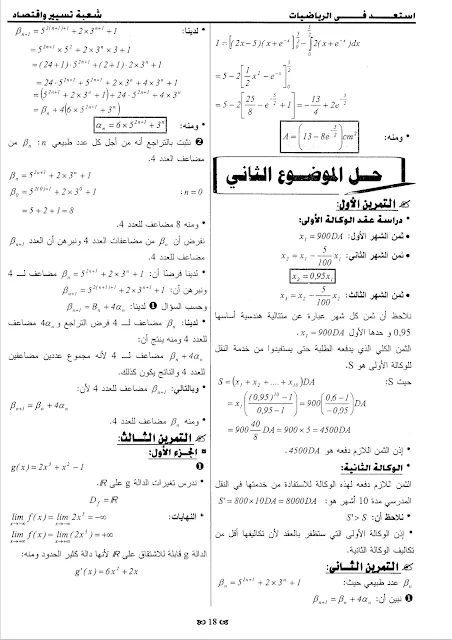 استعد في الرياضيات
شعبة تسيير واقتصاد
I = [(2x−5)(x+e⁻ˣ)]₀^{5/2} − ∫₀^{5/2} 2(x+e⁻ˣ)dx
= 5 − 2[1/2 x² − e⁻ˣ]₀^{5/2}
= 5 − 2[25/8 − e^{−5/2} + 1] = −13/4 + 2e^{−5/2}
ومنه: A = (13 − 8e^{−5/2}) cm²
حل الموضوع الثاني
التمرين الأول:
• دراسة عقد الوكالة الأولى:
• ثمن الشهر الأول: x₁ = 900DA
• ثمن الشهر الثاني: x₂ = x₁ − 5/100 x₁
x₂ = 0,95x₁
• ثمن الشهر الثالث: x₃ = x₂ − 5/100 x₂
نلاحظ أن ثمن كل شهر عبارة عن متتالية هندسية أساسها
0,95 و حدها الأول x₁ = 900DA.
الثمن الكلي الذي يدفعه الطلبة حتى يستفيدوا من خدمة النقل
للوكالة الأولى هو S.
حيث S: S = (x₁ + x₂ + .... + x₁₀)DA
= x₁((0,95)¹⁰ − 1 / 0,95 − 1) = 900(0,6−1 / −0,95)DA
= 900 40/8 DA = 900 × 5 = 4500DA
• إذن الثمن اللازم دفعه هو 4500DA.
• الوكالة الثانية:
الثمن اللازم دفعه لهذه الوكالة للاستفادة من خدمتها في النقل
المدرسي مدة 10 أشهر هو: S' = 800×10DA = 8000DA
• نلاحظ أن: S' > S
• إذن الوكالة الأولى التي ستظفر بالعقد لأن تكاليفها أقل من
تكاليف الوكالة الثانية.
التمرين الثاني:
βₙ عدد طبيعي حيث: βₙ = 5²ⁿ⁺¹ + 2×3ⁿ + 1
❶ نبين أن: βₙ₊₁ = βₙ + 4αₙ
• لدينا: βₙ₊₁ = 5²⁽ⁿ⁺¹⁾⁺¹ + 2×3ⁿ⁺¹ + 1
= 5²ⁿ⁺¹ × 5² + 2×3ⁿ × 3 + 1
= (24+1)·5²ⁿ⁺¹ + (2+1)·2×3ⁿ + 1
= 24·5²ⁿ⁺¹ + 5²ⁿ⁺¹ + 2×3ⁿ + 4×3ⁿ + 1
= (5²ⁿ⁺¹ + 2×3ⁿ + 1) + 24·5²ⁿ⁺¹ + 4×3ⁿ
= βₙ + 4(6×5²ⁿ⁺¹ + 3ⁿ)
ومنه: αₙ = 6×5²ⁿ⁺¹ + 3ⁿ
❷ نثبت بالتراجع أنه من أجل كل عدد طبيعي n: βₙ من
مضاعف العدد 4.
βₙ = 5²ⁿ⁺¹ + 2×3ⁿ + 1
n = 0: β₀ = 5²⁽⁰⁾⁺¹ + 2×3⁰ + 1
= 5 + 2 + 1 = 8
• ومنه 8 مضاعف للعدد 4.
نفرض أن βₙ من مضاعفات العدد 4 ونبرهن أن العدد βₙ₊₁
مضاعف للعدد 4.
• لدينا فرضا أن: βₙ = 5²ⁿ⁺¹ + 2×3ⁿ + 1 مضاعف لـ 4
ونبرهن أن: βₙ₊₁ = 5²⁽ⁿ⁺¹⁾⁺¹ + 2×3ⁿ⁺¹ + 1
وحسب السؤال ❶ لدينا: βₙ₊₁ = Bₙ + 4αₙ
• لدينا: βₙ مضاعف لـ 4 فرض التراجع و 4αₙ مضاعف
للعدد 4 ومنه ينتج أن:
βₙ + 4αₙ مضاعف لـ 4 لأنه مجموع عددين مضاعفين
للعدد 4 والناتج يكون كذلك.
• وبالتالي: βₙ₊₁ مضاعف للعدد 4 لأن:
βₙ₊₁ = βₙ + 4αₙ
• ومنه βₙ مضاعف للعدد 4.
التمرين الثالث:
الجزء الأول:
❶
g(x) = 2x³ + x² − 1
• ندرس تغيرات الدالة g على ℝ.
D_f = ℝ
• النهايات: lim f(x) = lim 2x³ = −∞
lim f(x) = lim(2x³) = +∞
الدالة g قابلة للاشتقاق على ℝ لأنها دالة كثير الحدود ومنه:
g'(x) = 6x² + 2x
18